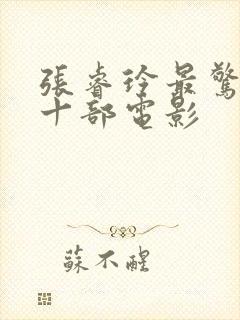 張睿玲最驚
十部電影
蘇不醒